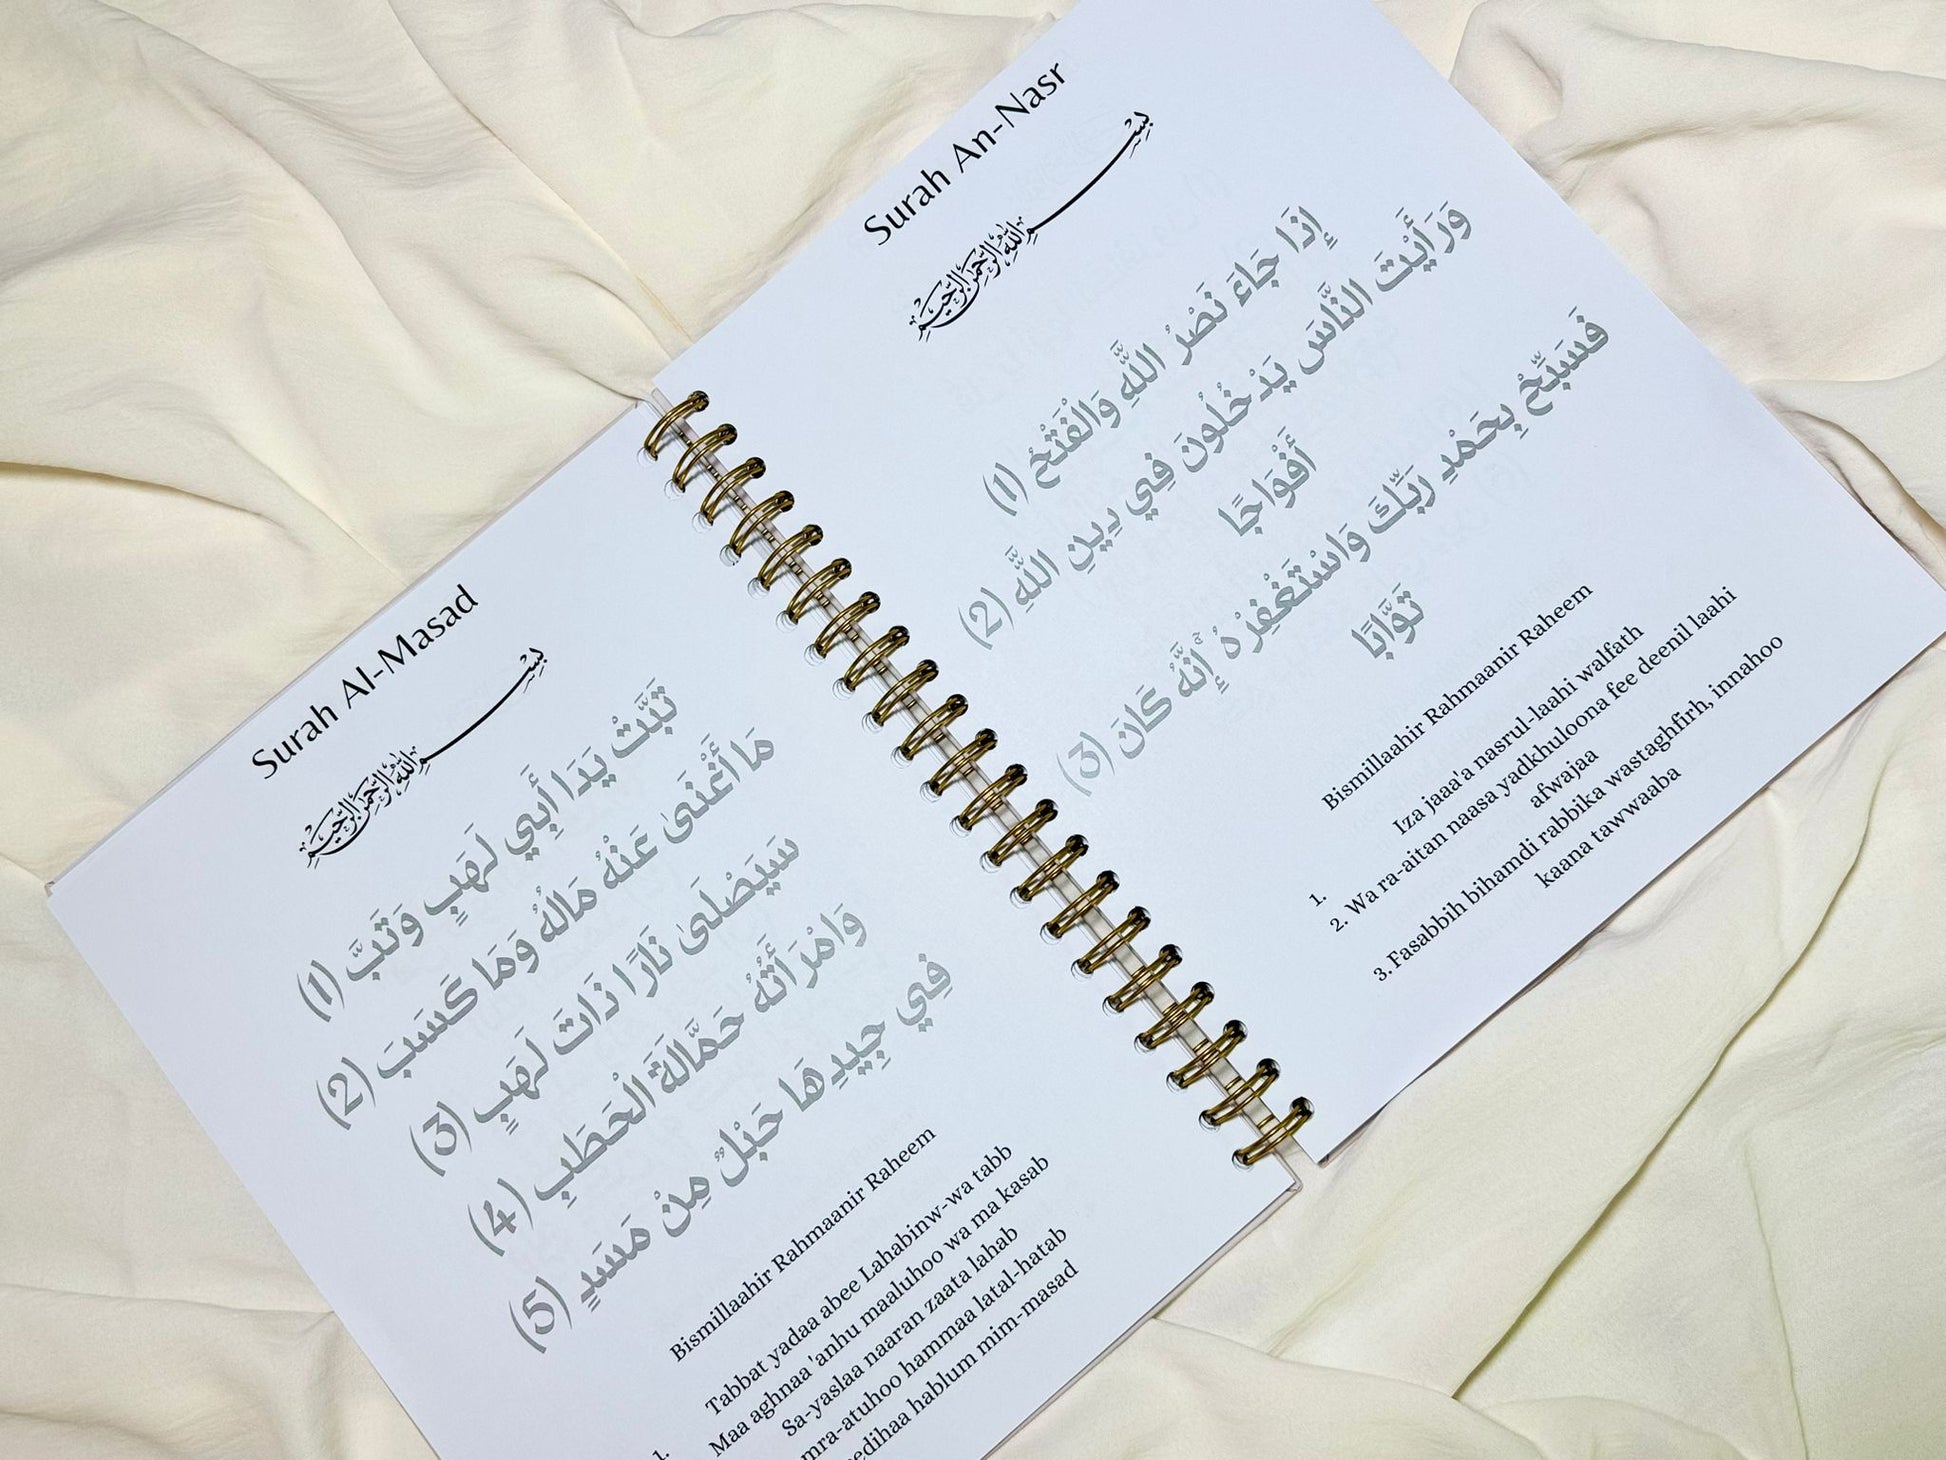 Surah Al-Masad
بِسْمِ اللهِ الرَّحْمٰنِ الرَّحِيْمِ
تَبَّتْ يَدَا أَبِي لَهَبٍ وَتَبَّ (1)
مَا أَغْنَىٰ عَنْهُ مَالُهُ وَمَا كَسَبَ (2)
سَيَصْلَىٰ نَارًا ذَاتَ لَهَبٍ (3)
وَامْرَأَتُهُ حَمَّالَةَ الْحَطَبِ (4)
فِي جِيدِهَا حَبْلٌ مِنْ مَسَدٍ (5)
Bismillaahir Rahmaanir Raheem
1. Tabbat yadaa abee Lahabinw-wa tabb
Maa aghnaa 'anhu maaluhoo wa ma kasab
Sa-yaslaa naaran zaata lahab
mra-atuhoo hammaa latal-hatab
eedihaa hablum mim-masad
Surah An-Nasr
بِسْمِ اللهِ الرَّحْمٰنِ الرَّحِيْمِ
إِذَا جَاءَ نَصْرُ اللَّهِ وَالْفَتْحُ (1)
وَرَأَيْتَ النَّاسَ يَدْخُلُونَ فِي دِينِ اللَّهِ (2)
أَفْوَاجًا
فَسَبِّحْ بِحَمْدِ رَبِّكَ وَاسْتَغْفِرْهُ ۚ إِنَّهُ كَانَ (3)
تَوَّابًا
Bismillaahir Rahmaanir Raheem
1. Iza jaaa'a nasrul-laahi walfath
2. Wa ra-aitan naasa yadkhuloona fee deenil laahi
afwajaa
3. Fasabbih bihamdi rabbika wastaghfirh, innahoo
kaana tawwaaba